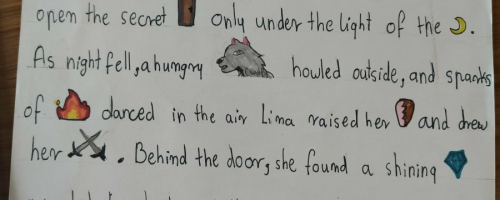 open the secret only under the light of the .
As night fell, a hungry howled outside, and sparks
of danced in the air Lima raised her and drew
her . Behind the door, she found a shining